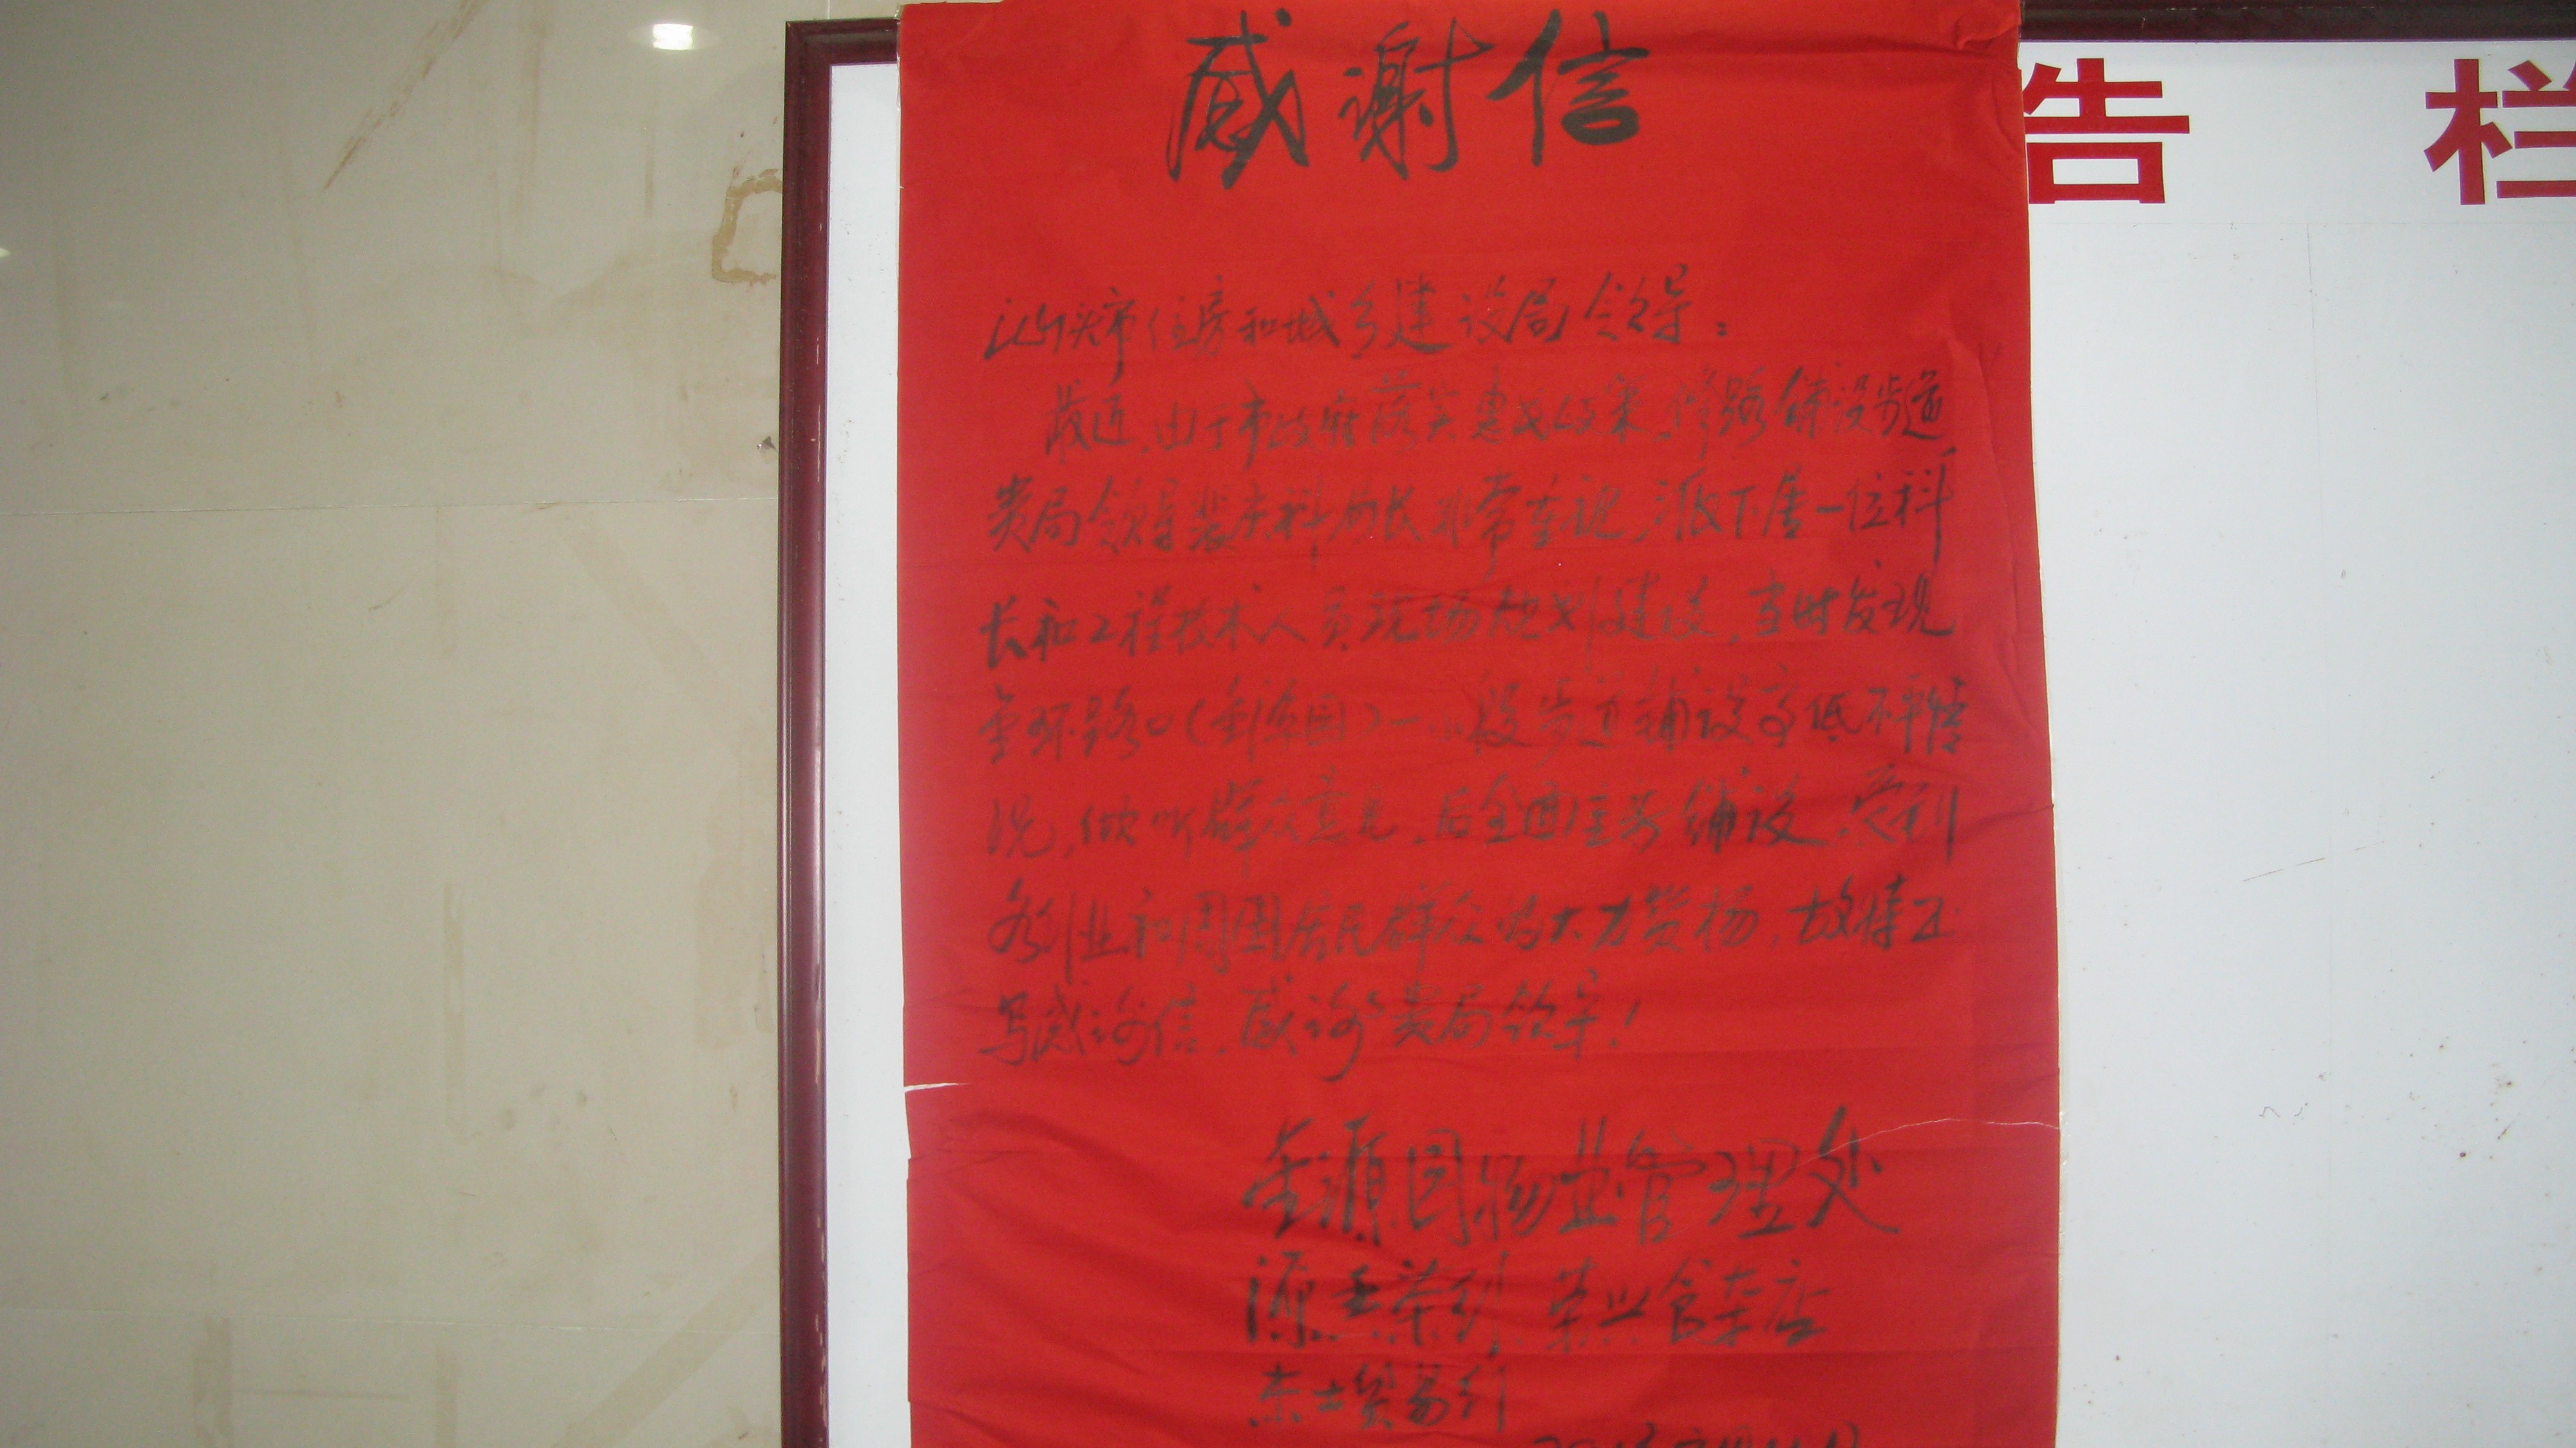 感谢信
告 栏
汕头市住房和城乡建设局领导:
最近,由于市政府落实惠民政策,修路铺设步道,
贵局领导裴庆科局长非常重视,派下属一位科
长和工程技术人员现场规划建设,当时发现
金环路口(金源园)一小段步道铺设高低不平情
况,倾听群众意见,后全面重新铺设,受到
各行业和周围居民群众的大力赞扬,故特此
写感谢信,感谢贵局领导!
金源园物业管理处
源玉茶行 荣兴食杂店
杰士贸易行